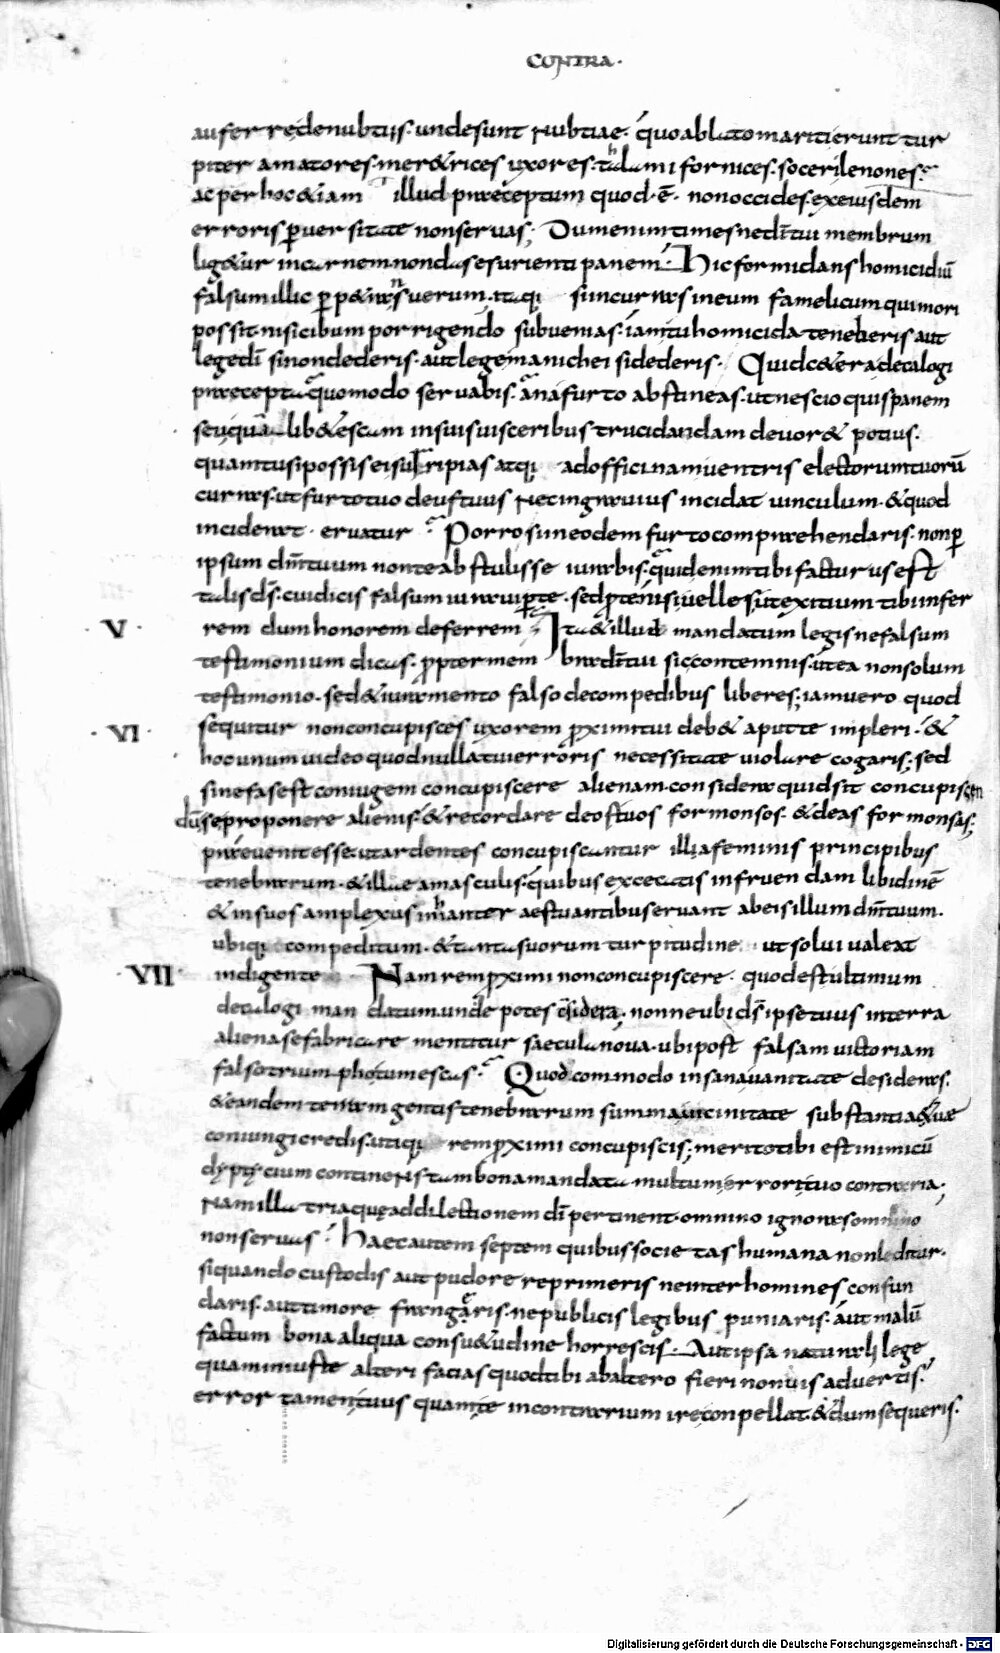 CONTRA.
aufer rede nubtiis. unde sunt nubtiae. quo ablato mariti erunt tur
piter amatores. mer&rices uxores. thalami fornices. soceri lenones.
ac per hoc &iam illud praeceptum quod .ē. non occides. ex eiusdem
erroris puersitate non servas; Dum enim times ne dī tui membrum
lig&ur in carnem non das esurienti panem. Hic formidans homicidiū
falsum illic pp&rans verum. itaqi si incurras in eum famelicum qui mori
possit nisi cibum porrigendo subvenias. iam tu homicida teneberis aut
lege dī si non dederis. aut lege manichei si dederis. Quid c&era decalogi
praecepta quomodo servabis. an a furto abstineas. ut nescio quis panem
seu quālib&escam in suis visceribus trucidandam devor& potius.
quam tu si possis ei subripias atqi ad officinam ventris electorum tuorū
curras. ut furto tuo deus tuus n& in gravius incidat vinculum. &quod
inciderat. eruatur Porro si in eodem furto comprehendaris. non p
ipsum dm̄ tuum non te abstulisse iurabis. quid enim tibi facturus est
talis ds̄. cui dicis falsum iuravi p te. sed p te nisi velles ut exitium tibi infer
V rem dum honorem deferrem Ita &illud mandatum legis ne falsum
testimonium dicas. ppter mem bra dī tui sic contemnis. ut ea non solum
testimonio. sed &iuramento falso de compedibus liberes; iam vero quod
VI sequitur non concupisces uxorem pximi tui deb& aput te impleri. &
hoc unum video quod nulla tui erroris necessitate violare cogaris; sed
si nefas est coniugem concupiscere alienam. considera quid sit concupiscen
dū se proponere alienis. &recordare deos tuos formonsos. &deas formonsas;
praevenit esse. ut ardentes concupiscantur illi a feminis principibus
tenebrarum. &illae a masculis. quibus excecatis infruendam libidinē
&in suos amplexus inhianter aestuantibus ervant ab eis illum dm̄ tuum.
ubiqi compeditum. &tanta suorum turpitudine ut solui valeat
VII indigente Nam rem pximi non concupiscere. quod est ultimum
decalogi mandatum. unde potes considera; nonne ubi ds̄ ipse tuus in terra
aliena se fabricare mentitur saecula nova. ubi post falsam victoriam
falso trium photumescas. Quod com modo insana vanitate desideras.
&eandem terram gentis tenebrarum summa vicinitate substantia &uae
coniungi credis. utiqi rem pximi concupiscis; merito tibi est inimicū
diptycium continens tam bona mandata multum errori tuo contraria;
nam illa tria quę ad dilectionem dī pertinent. omnino ignoras omnino
non servas. Haec autem septem quibus societas humana non leditur.
si quando custodis aut pudore reprimeris ne inter homines confun
daris. aut timore frangaris. ne publicis legibus puniaris. aut malū
factum bona aliqua consu&udine horrescis. Aut ipsa naturali lege
quam iniuste alteri facias quod tibi ab altero fieri non vis advertis.
error tamen tuus quam te in contrarium ire conpellat. &dum sequeris.
Digitalisierung gefördert durch die Deutsche Forschungsgemeinschaft - DFG